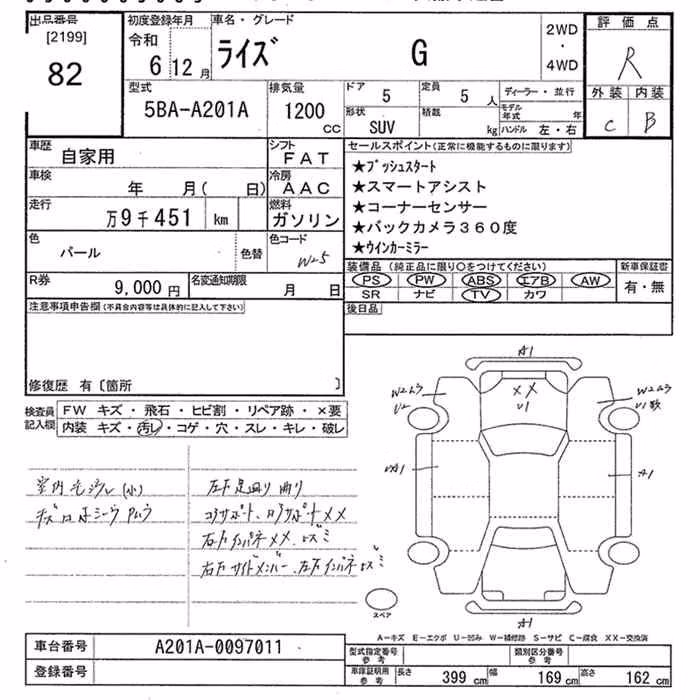 出品番号
[2199]
82
初度登録年月
令和
6 12月
車名・グレード
ライズ G
2WD
・
4WD
評価点
R
外装 内装
C B
型式
5BA-A201A
排気量
1200
CC
ドア
5
定員
5 人
形状
SUV
積載
kg
ディーラー・並行
モデル年式 年
ハンドル 左・右
車歴
自家用
シフト
FAT
車検
年 月( 日)
冷房
AAC
走行
万9千451 km
燃料
ガソリン
色
パール
色替
色コード
W25
R券
9,000 円
名変通知期限
月 日
セールスポイント(正常に機能するものに限ります)
★プッシュスタート
★スマートアシスト
★コーナーセンサー
★バックカメラ360度
★ウインカーミラー
装備品(純正品に限り○をつけてください)
PS PW ABS エアB AW
SR ナビ TV カワ
新車保証書
有・無
注意事項申告欄(不具合内容等は具体的に記入して下さい)
後日品
修復歴 有〔箇所 〕
検査員記入欄
FW キズ・飛石・ヒビ割・リペア跡・×要
内装 キズ・汚レ・コゲ・穴・スレ・キレ・破レ
左F足廻り曲り
コアサポート、
右Fインパネメメ
右Fサイドメンバー、左Fインパネ
A1
XX
U1
W2ムラ
U2
W2ムラ
U1数
A1
A1
スペア
A-キズ E-エクボ U-凹み W-補修跡 S-サビ C-腐食 XX-交換済
車台番号
A201A-0097011
登録番号
型式指定番号
参考
類別区分番号
参考
車庫証明用
参考
長さ 399 cm 幅 169 cm 高さ 162 cm